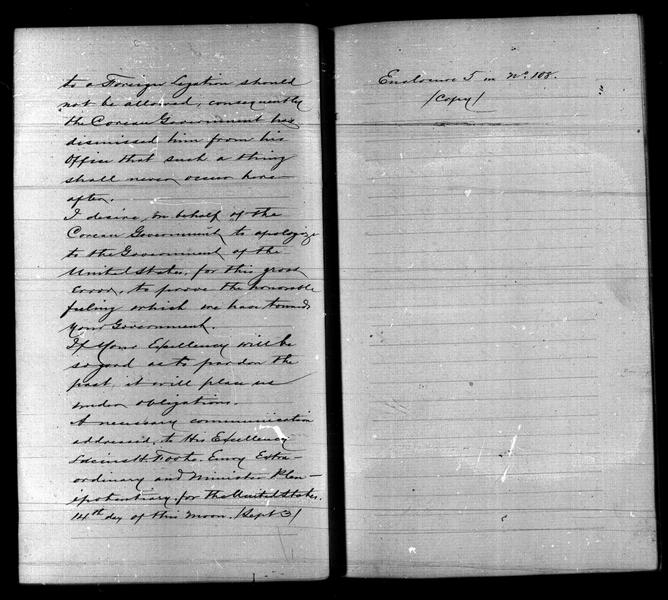 to a Foreign Legation should
not be allowed, consequently
the Corean Government has
dismissed him from his
Office that such a thing
shall never occur here-
after.
I desire, on behalf of the
Corean Government, to apologize
to the Government of the
United States, for this gross
error, to prove the honorable
feeling which we have towards
your Government.
If Your Excellency will be
so good as to pardon the
past, it will place us
under obligations.
A necessary communication
addressed, to His Excellency
Lucius H. Foote, Envoy Extra-
ordinary and Minister Plen-
ipotentiary, for the United States.
14th day of this Moon. /Sept 3/
Enclosure 5 in No. 108.
/Copy/